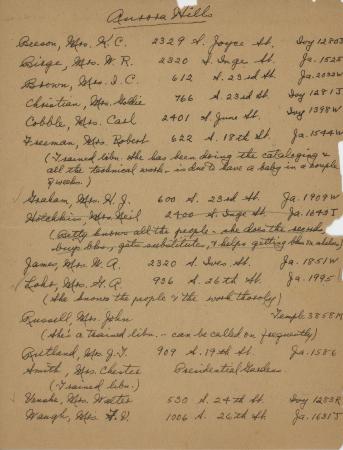 Aurora Hills
Beeson, Mrs. K. C. 2329 S. Joyce St. Ivy 1280J
Birge, Mrs. W. R. 2320 S. Inge St. Ja. 1525
Brown, Mrs. I. C. 612 S. 23rd St. Ja. 2032W
Christian, Mrs. Godie 766 S. 23rd St. Ivy 1281J
Cobble, Mrs. Carl 2401 S. June St. Ivy 1398W
Freeman, Mrs. Robert 622 S. 18th St. Ja. 1544W
(Trained libn. She has been doing the cataloging &
all the technical work - is due to have a baby in a couple
of weeks.)
Graham, Mrs. H. J. 600 S. 23rd St. Ja. 1909W
Hotchkiss, Mrs. Neil 2400 S. Inge St. Ja. 1643J
(Betty knows all the people - she does the records,
buys bks, gets substitutes, & helps getting
James, Mrs. W. A. 2320 S. Ives St. Ja. 1851W
Lohr, Mrs. H. A. 936 S. 26th St. Ja. 1995
(She knows the people & the work thoroly)
Russell, Mrs. John Temple 3858M
(She's a trained libn. - can be called on frequently)
Rutland, Mrs. J. T. 909 S. 19th St. Ja. 1586
Smith, Mrs. Chester Presidential Gardens
(Trained libn.)
Mrs. Walter 530 S. 24th St. Ivy 1253R
Waugh, Mrs. F. V. 1006 S. 26th St. Ja. 1631J